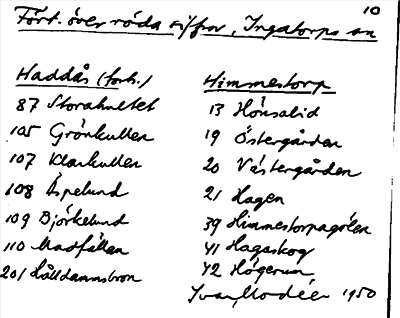 10
Fört. över röda siffror, Ingatorps sn
Haddås (forts.)
87 Storahultet
105 Grönkullen
107 Klarkullen
108 Aspelund
109 Björkelund
110 Madfällan
201 Hålldammsbron
Himmestorp
13 Hönsalid
19 Östergården
20 Västergården
21 Hagen
39 Himmestorpagölen
41 Hagaskog
42 Högerum
Ivar Modéer 1950